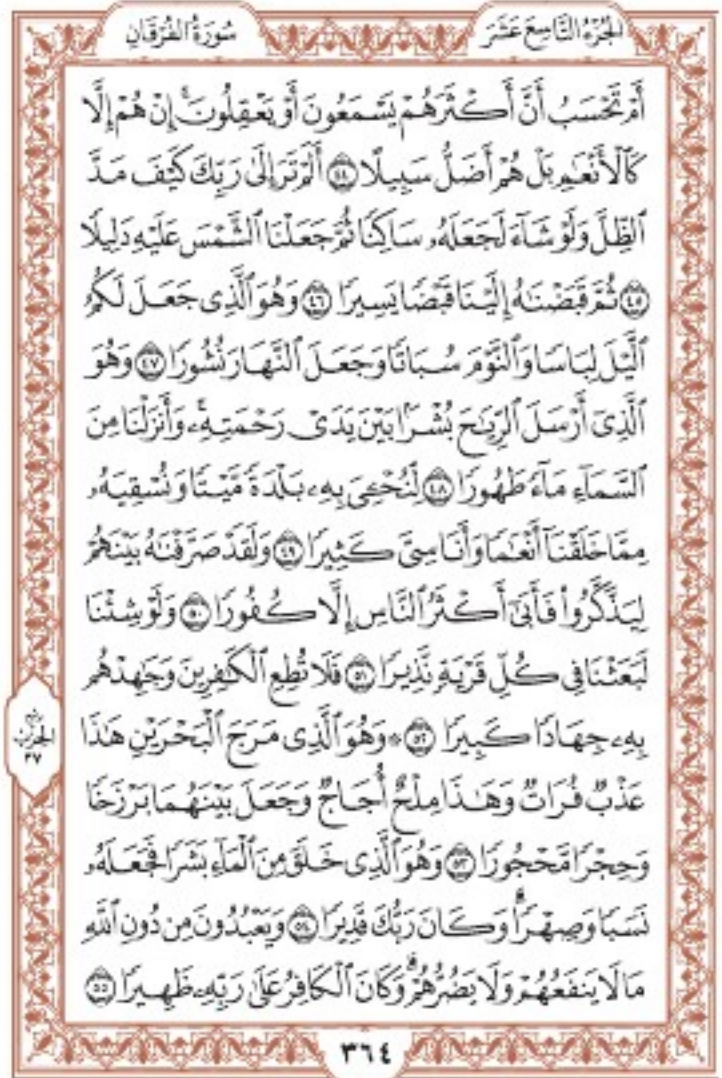 الجُزْءُ التَّاسِعَ عَشَرَ
سُورَةُ الفُرْقَانِ
أَمْ تَحْسَبُ أَنَّ أَكْثَرَهُمْ يَسْمَعُونَ أَوْ يَعْقِلُونَۚ إِنْ هُمْ إِلَّا
كَٱلْأَنْعَٰمِ بَلْ هُمْ أَضَلُّ سَبِيلًا ٤٤ أَلَمْ تَرَ إِلَىٰ رَبِّكَ كَيْفَ مَدَّ
ٱلظِّلَّ وَلَوْ شَآءَ لَجَعَلَهُۥ سَاكِنًا ثُمَّ جَعَلْنَا ٱلشَّمْسَ عَلَيْهِ دَلِيلًا
٤٥ ثُمَّ قَبَضْنَٰهُ إِلَيْنَا قَبْضًا يَسِيرًا ٤٦ وَهُوَ ٱلَّذِى جَعَلَ لَكُمُ
ٱلَّيْلَ لِبَاسًا وَٱلنَّوْمَ سُبَاتًا وَجَعَلَ ٱلنَّهَارَ نُشُورًا ٤٧ وَهُوَ
ٱلَّذِىٓ أَرْسَلَ ٱلرِّيَٰحَ بُشْرًۢا بَيْنَ يَدَىْ رَحْمَتِهِۦۚ وَأَنزَلْنَا مِنَ
ٱلسَّمَآءِ مَآءً طَهُورًا ٤٨ لِّنُحْـِۧىَ بِهِۦ بَلْدَةً مَّيْتًا وَنُسْقِيَهُۥ
مِمَّا خَلَقْنَآ أَنْعَٰمًا وَأَنَاسِىَّ كَثِيرًا ٤٩ وَلَقَدْ صَرَّفْنَٰهُ بَيْنَهُمْ
لِيَذَّكَّرُوا۟ فَأَبَىٰٓ أَكْثَرُ ٱلنَّاسِ إِلَّا كُفُورًا ٥٠ وَلَوْ شِئْنَا
لَبَعَثْنَا فِى كُلِّ قَرْيَةٍ نَّذِيرًا ٥١ فَلَا تُطِعِ ٱلْكَٰفِرِينَ وَجَٰهِدْهُم
بِهِۦ جِهَادًا كَبِيرًا ٥٢ ۞ وَهُوَ ٱلَّذِى مَرَجَ ٱلْبَحْرَيْنِ هَٰذَا
عَذْبٌ فُرَاتٌ وَهَٰذَا مِلْحٌ أُجَاجٌ وَجَعَلَ بَيْنَهُمَا بَرْزَخًا
وَحِجْرًا مَّحْجُورًا ٥٣ وَهُوَ ٱلَّذِى خَلَقَ مِنَ ٱلْمَآءِ بَشَرًا فَجَعَلَهُۥ
نَسَبًا وَصِهْرًاۗ وَكَانَ رَبُّكَ قَدِيرًا ٥٤ وَيَعْبُدُونَ مِن دُونِ ٱللَّهِ
مَا لَا يَنفَعُهُمْ وَلَا يَضُرُّهُمْۗ وَكَانَ ٱلْكَافِرُ عَلَىٰ رَبِّهِۦ ظَهِيرًا ٥٥
ربع
الحزب
٣٧
٣٦٤